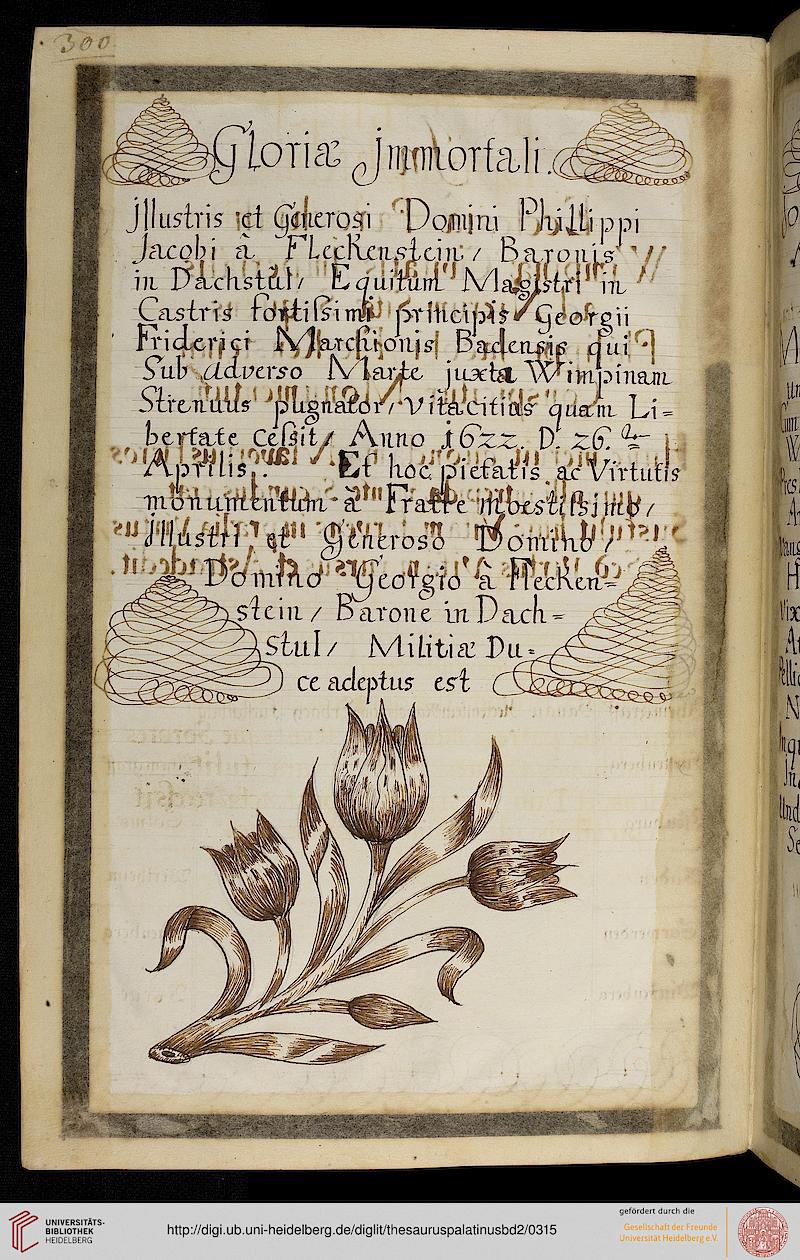 300
Gloriæ Jmmortali.
Jllustris et Generosi Domini Phillippi
Jacobi â Fleckenstein / Baronis
in Dachstùl / Equitum Magistri in
Castris fortiſsimi principis Georgii
Friderici Marchionis Badensis qui
Sub adverso Marte juxta Wimpinam
Strenuus pugnator / vita citius quam Li=
bertate ceſsit / Anno 1622. D. 26.
Aprilis. Et hoc pietatis ac Virtutis
monumentum â Fratre moestiſsimo /
Jllustri et Generoso Domino /
Domino Georgio â Flecken=
stein / Barone in Dach=
stul / Militiæ Du=
ce adeptus est
UNIVERSITÄTS-
BIBLIOTHEK
HEIDELBERG
http://digi.ub.uni-heidelberg.de/diglit/thesauruspalatinusbd2/0315
gefördert durch die
Gesellschaft der Freunde
Universität Heidelberg e.V.